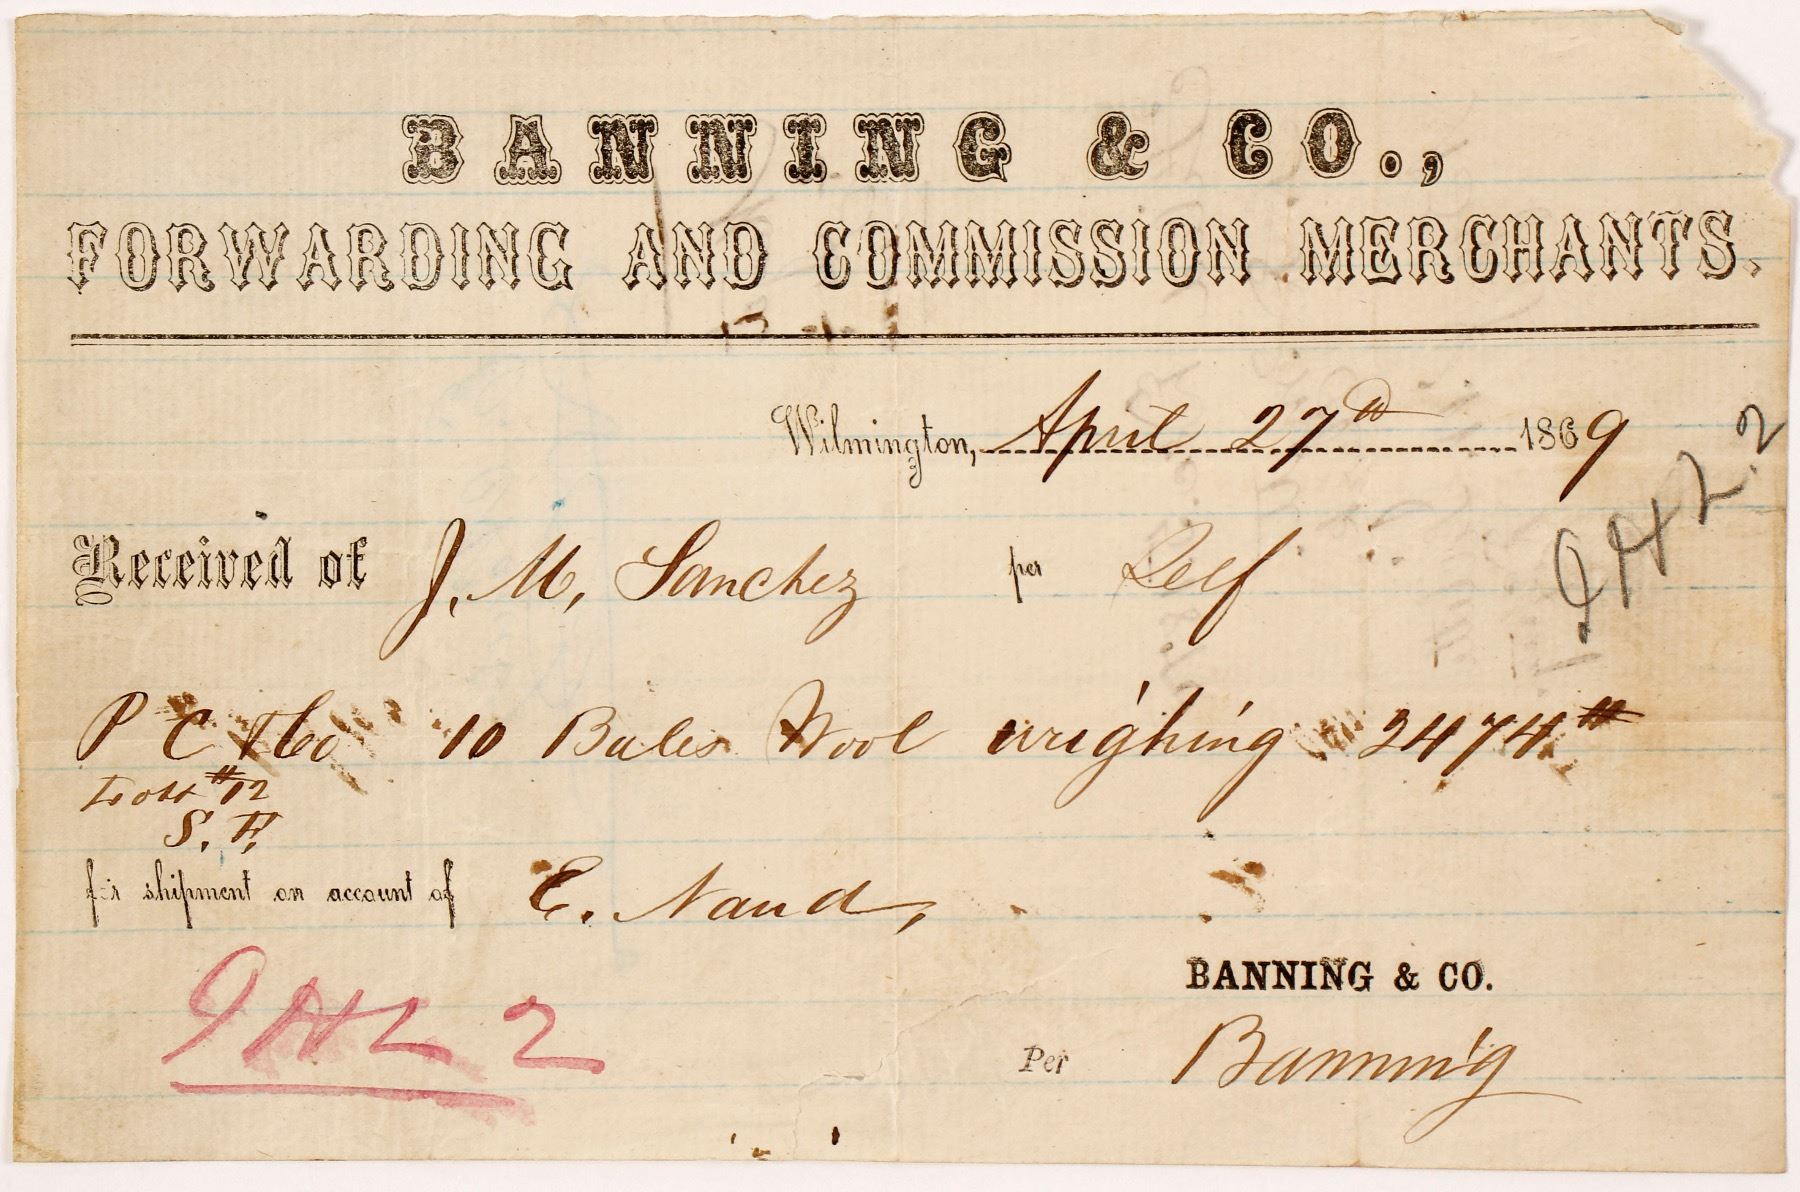 BANNING & CO.,
FORWARDING AND COMMISSION MERCHANTS.
Wilmington, April 27th 1869
Received of J. M. Sanchez per Self
P C 10 Bales Wool weighing 2474 #
Lott #12
S. F.
for shipment on account of E. Naud,
BANNING & CO.
Per Banning